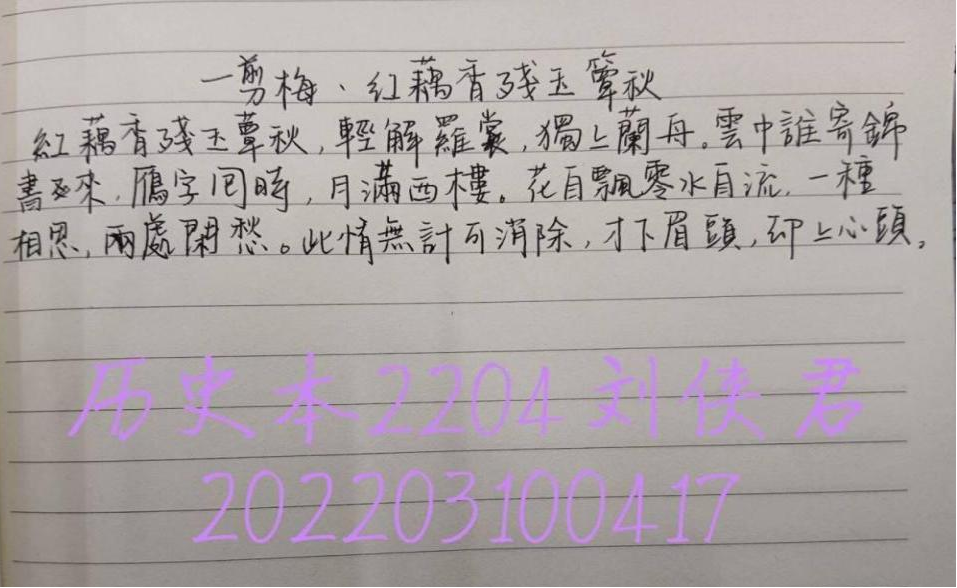 一剪梅、紅藕香殘玉簟秋
紅藕香殘玉蕈秋,輕解羅裳,獨上蘭舟。雲中誰寄錦
書來,鴈字囘時,月滿西樓。花自飄零水自流,一種
相思,兩處閑愁。此情無計可消除,才下眉頭,卻上心頭。
历史本2204刘侠君
202203100417